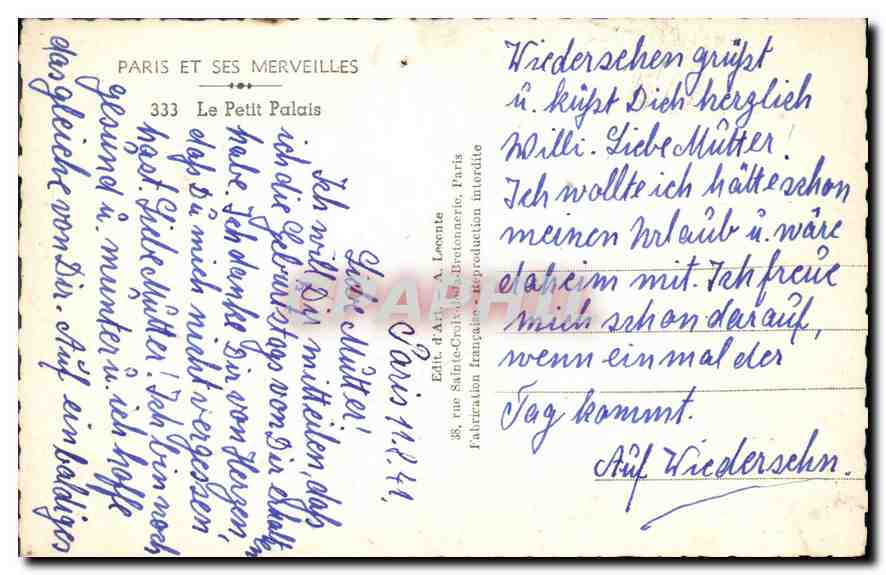 PARIS ET SES MERVEILLES
333 Le Petit Palais
Paris 11.8.41.
Liebe Mutter!
Ich will Dir mitteilen, das
ich die Geburtstags von Dir erhalten
habe. Ich danke Dir von Herzen,
das Du mich nicht vergessen
hast. Liebe Mutter! Ich bin noch
gesund u. munter u. ich hoffe
dasgleiche von Dir. Auf ein baldiges
Wiedersehen grüßt
u. küßt Dich herzlich
Willi. Liebe Mutter!
Ich wollte ich hätte schon
meinen Urlaub u. wäre
daheim mit. Ich freue
mich schon darauf,
wenn einmal der
Tag kommt.
Auf Wiedersehn.
Edit. d'Art. A. Leconte
38, rue Sainte-Croix-de-la-Bretonnerie, Paris
Fabrication française - Reproduction interdite